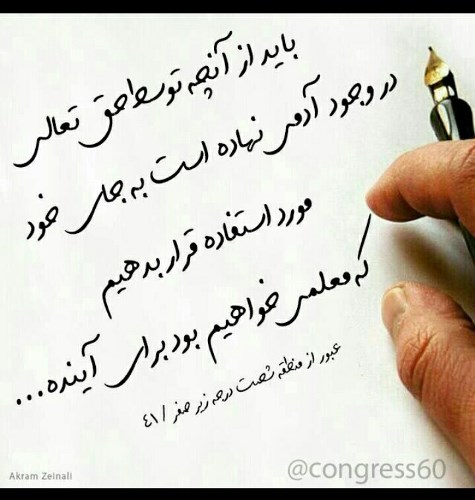 باید از آنچه توسط حق تعالی
در وجود آدمی نهاده است به جای خود
مورد استفاده قرار بدهیم
که معلمی خواهیم بود برای آینده...
عبور از منطقه شصت درجه زیر صفر / ٤١
Akram Zeinali
@congress60